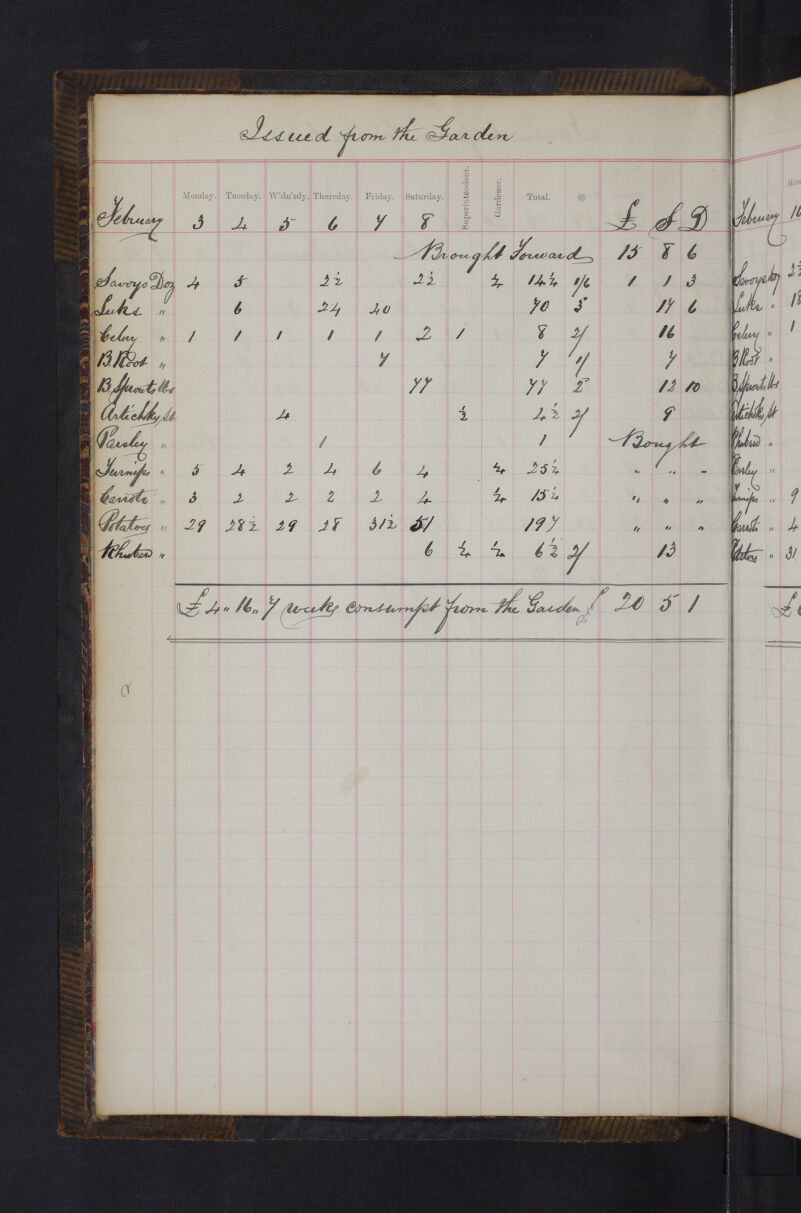 Issued from the Garden
Monday. Tuesday. W'dn'sdy. Thursday. Friday. Saturday. Superintendent. Gardener. Total. @
February 3 4 5 6 7 8 £ S D
Brought Forward 15 8 6
Savoys Doz 4 5 2½ 2½ ¼ 14¼ 1/6 1 1 3
Leeks " 6 24 40 70 3 17 6
Celery " 1 1 1 1 1 2 1 8 2/ 16
B. Root " 7 7 1/ 7
B. Sprouts lbs 77 77 2 12 10
Artichks, St 4 ½ 4½ 2/ 9
Parsley " 1 1 Bought
Turnips " 5 4 2 4 6 4 ¼ 25¼ " " "
Carrots " 3 2 2 2 2 4 ¼ 15¼ " " "
Potatoes " 29 28½ 29 28 31½ 51 197 " " "
Rhubarb " 6 ¼ ¼ 6½ 2/ 13
£ 4 " 16 " 7 weeks consumpt from the Garden £ 20 5 1
February 10
Savoys doz 2½
Leeks " 18
Celery " 1
B Root "
B, Sprouts lbs
Artichks, St
Rhubarb "
Parsley "
Turnips " 9
Carrots " 4
Potatoes " 31
£